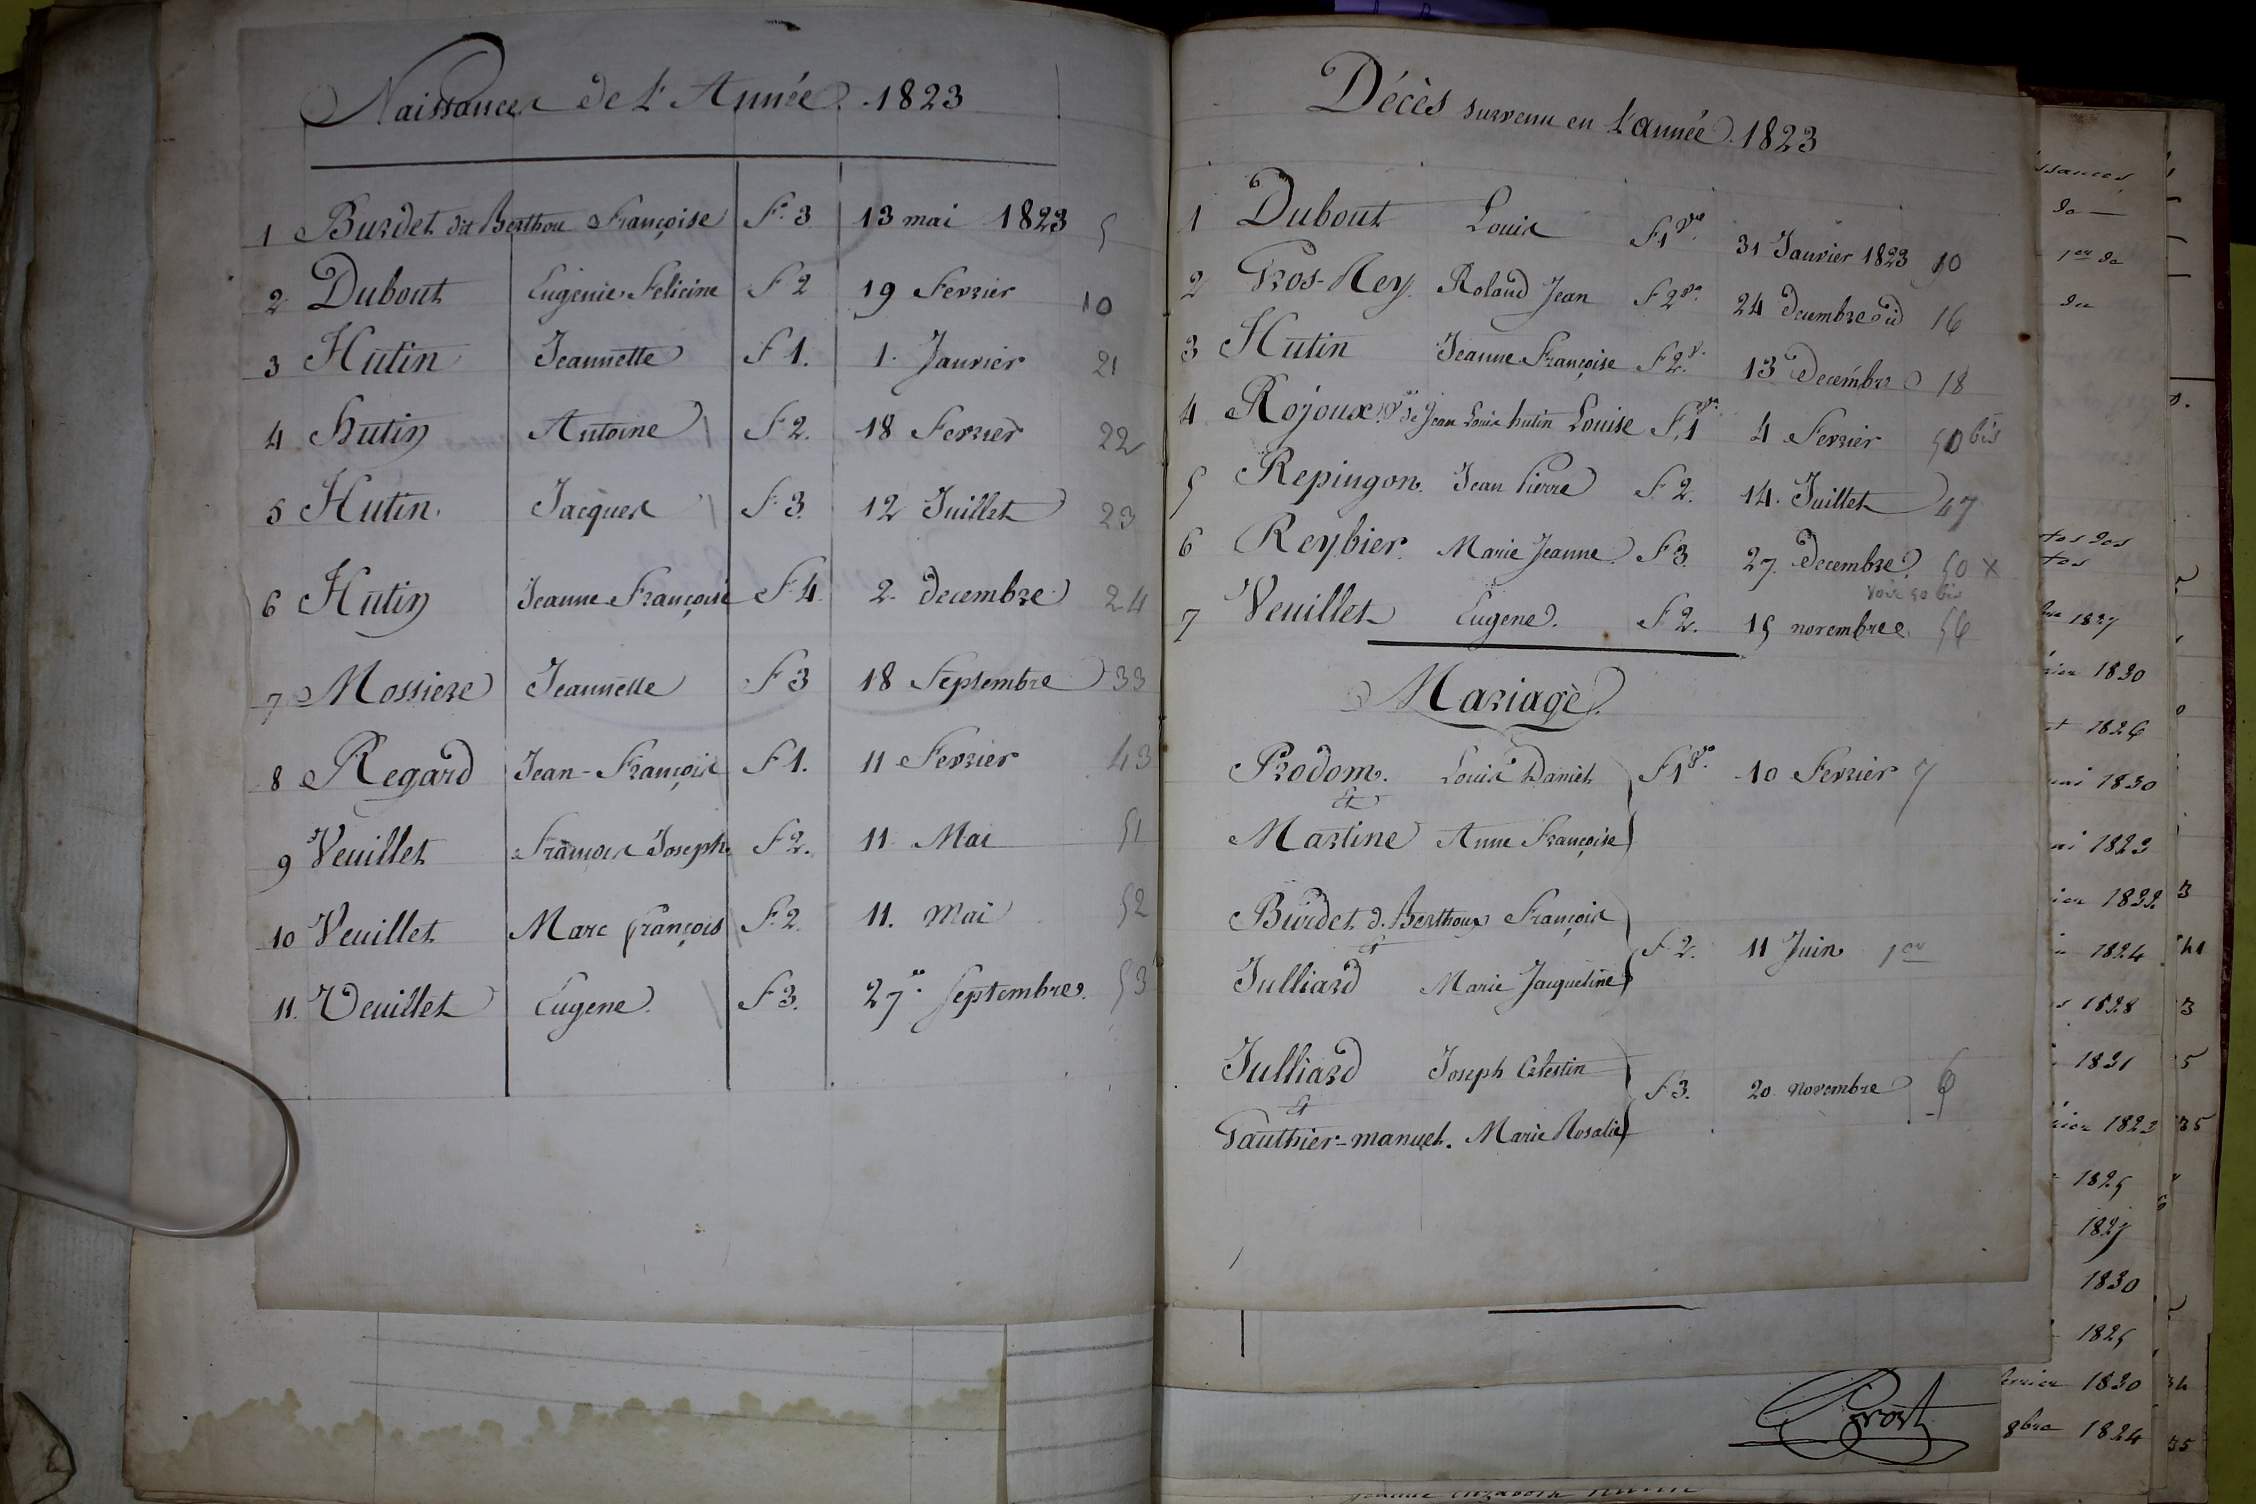 Naissances de L'Année. 1823
1 Burdet dit Berthou Françoise F. 3 13 mai 1823 5
2 Dubout Eugénie Felicine F 2 19 Fevrier 10
3 Hutin Jeannette F 1. 1. Janvier 21
4 hutin Antoine F 2. 18 Fevrier 22
5 Hutin. Jacques F. 3. 12 Juillet 23
6 Hutin Jeanne Françoise F 4 2. decembre 24
7 Mossiere Jeannette F 3 18 Septembre 33
8 Regard Jean-François F 1. 11 Fevrier 43
9 Veuillet François Joseph F 2. 11 Mai 51
10 Veuillet Marc françois F. 2. 11. mai 52
11. Veuillet Eugene. F 3. 27. Septembre. 53
Décès survenu en L'année. 1823
1 Dubout Louis F 1 vo. 31 Janvier 1823 10
2 Gros-Rey. Roland Jean F 2 vo. 24 decembre id 16
3 Hutin Jeanne Françoise F 2 v. 13 Decembre 18
4 Rojoux. ve de Jean Louis hutin Louise F. 1 vo. 4 Fevrier 50 bis
5 Repingon. Jean Pierre F 2. 14. Juillet 47
6 Reybier. Marie Jeanne F 3. 27. decembre. 50 x
voir 50 bis
7 Veuillet Eugene. F 2. 15 novembre. 56
Mariage.
Prodom. Louis Daniel F 1 vo. 10 Fevrier 7
et
Martine Anne Françoise
Burdet d. Berthoux François
et F 2. 11 Juin 1er
Julliard Marie Jacqueline
Julliard Joseph Celestin
et F 3. 20 novembre 6
Gauthier-manuel. Marie Rosalie
ssances
do
1er do
du
tos des
tos
1827
1830
1826
1830
mai 1823
1822 3
1824
1828 3
1831 5
1823 35
1825
1827
1830
1825
1830
8bre 1824 35